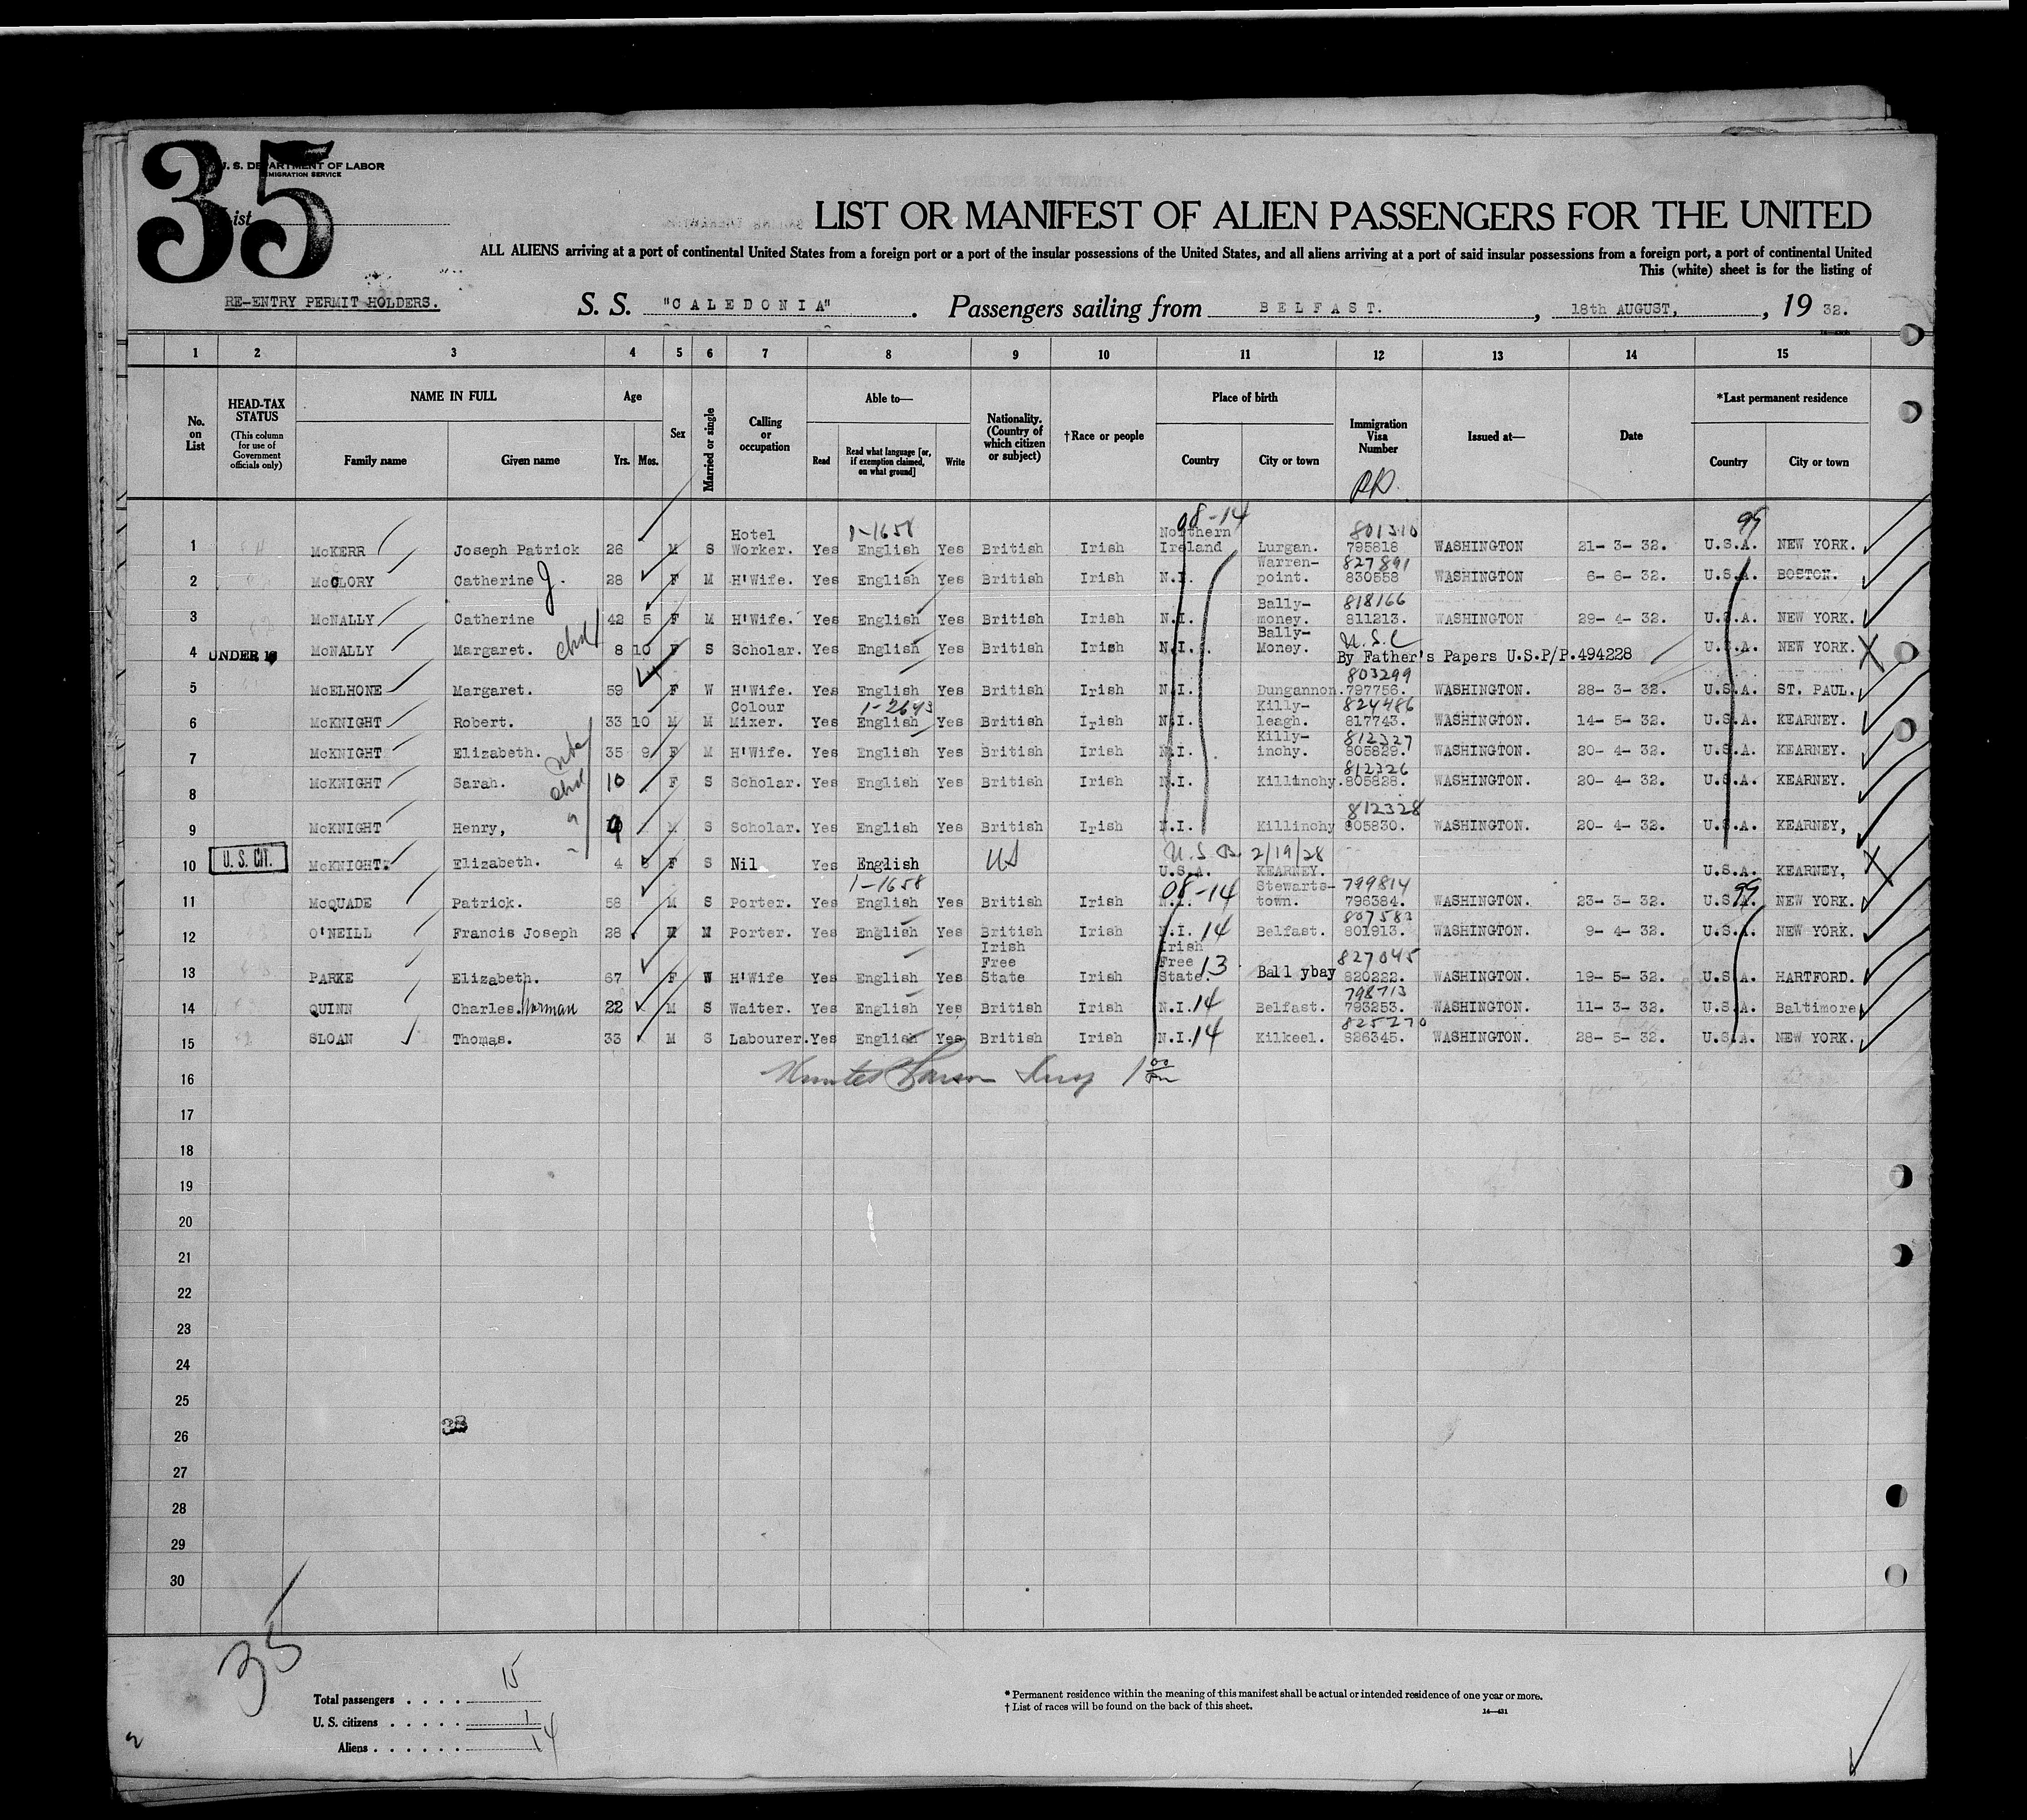 35
U. S. DEPARTMENT OF LABOR
IMMIGRATION SERVICE
List
LIST OR MANIFEST OF ALIEN PASSENGERS FOR THE UNITED
ALL ALIENS arriving at a port of continental United States from a foreign port or a port of the insular possessions of the United States, and all aliens arriving at a port of said insular possessions from a foreign port, a port of continental United
This (white) sheet is for the listing of
RE-ENTRY PERMIT HOLDERS. S. S. "CALEDONIA". Passengers sailing from BELFAST., 18th AUGUST, , 19 32.
1 2 3 4 5 6 7 8 9 10 11 12 13 14 15
No. on List HEAD-TAX STATUS (This column for use of Government officials only) NAME IN FULL Family name Given name Age Yrs. Mos. Sex Married or single Calling or occupation Able to— Read Read what language [or, if exemption claimed, on what ground] Write Nationality. (Country of which citizen or subject) †Race or people Place of birth Country City or town Immigration Visa Number Issued at— Date *Last permanent residence Country City or town
1-1658 08-14 801310 99
1 McKERR Joseph Patrick 26 M S Hotel Worker. Yes English Yes British Irish Northern Ireland Lurgan. 795818 WASHINGTON 21- 3- 32. U.S.A. NEW YORK.
827891
2 McCLORY Catherine J. 28 F M H'Wife. Yes English Yes British Irish N.I. Warren-point. 830558 WASHINGTON 6- 6- 32. U.S.A. BOSTON.
818166
3 McNALLY Catherine 42 5 F M H'Wife. Yes English Yes British Irish N.I. Bally-money. 811213. WASHINGTON 29- 4- 32. U.S.A. NEW YORK.
U.S.C
4 UNDER 16 McNALLY Margaret. chd 8 10 F S Scholar. Yes English Yes British Irish N.I. Bally-Money. By Father's Papers U.S.P/P.494228 U.S.A. NEW YORK.
803299
5 McELHONE Margaret. 59 F W H'Wife. Yes English Yes British Irish N.I. Dungannon. 797756. WASHINGTON. 28- 3- 32. U.S.A. ST. PAUL.
1-2643 824486
6 McKNIGHT Robert. 33 10 M M Colour Mixer. Yes English Yes British Irish N.I. Killy-leagh. 817743. WASHINGTON. 14- 5- 32. U.S.A. KEARNEY.
812327
7 McKNIGHT Elizabeth. 35 9 F M H'Wife. Yes English Yes British Irish N.I. Killy-inchy. 805829. WASHINGTON. 20- 4- 32. U.S.A. KEARNEY.
812326
8 McKNIGHT Sarah. chd 10 F S Scholar. Yes English Yes British Irish N.I. Killinchy. 805828. WASHINGTON. 20- 4- 32. U.S.A. KEARNEY.
812328
9 McKNIGHT Henry, 9 M S Scholar. Yes English Yes British Irish N.I. Killinchy 805830. WASHINGTON. 20- 4- 32. U.S.A. KEARNEY,
U.S.B. 2/19/28
10 U. S. CIT. McKNIGHT. Elizabeth. 4 F S Nil Yes English US U.S.A. KEARNEY. U.S.A. KEARNEY,
1-1658 08-14 799814 99
11 McQUADE Patrick. 58 M S Porter. Yes English Yes British Irish N.I. Stewarts-town. 796384. WASHINGTON. 23- 3- 32. U.S.A. NEW YORK.
807583
12 O'NEILL Francis Joseph 28 M M Porter. Yes English Yes British Irish N.I. 14 Belfast. 801913. WASHINGTON. 9- 4- 32. U.S.A. NEW YORK.
827045
13 PARKE Elizabeth. 67 F W H'Wife Yes English Yes Irish Free State Irish Irish Free State. 13 Ballybay 820222. WASHINGTON. 19- 5- 32. U.S.A. HARTFORD.
798713
14 QUINN Charles. Norman 22 M S Waiter. Yes English Yes British Irish N.I. 14 Belfast. 793253. WASHINGTON. 11- 3- 32. U.S.A. Baltimore
825270
15 SLOAN Thomas. 33 M S Labourer. Yes English Yes British Irish N.I. 14 Kilkeel. 826345. WASHINGTON. 28- 5- 32. U.S.A. NEW YORK.
16
17
18
19
20
21
22
23
24
25
26
27
28
29
30
35
Total passengers . . . . 15
U. S. citizens . . . . . 1
Aliens . . . . . . 14
* Permanent residence within the meaning of this manifest shall be actual or intended residence of one year or more.
† List of races will be found on the back of this sheet.
14—431